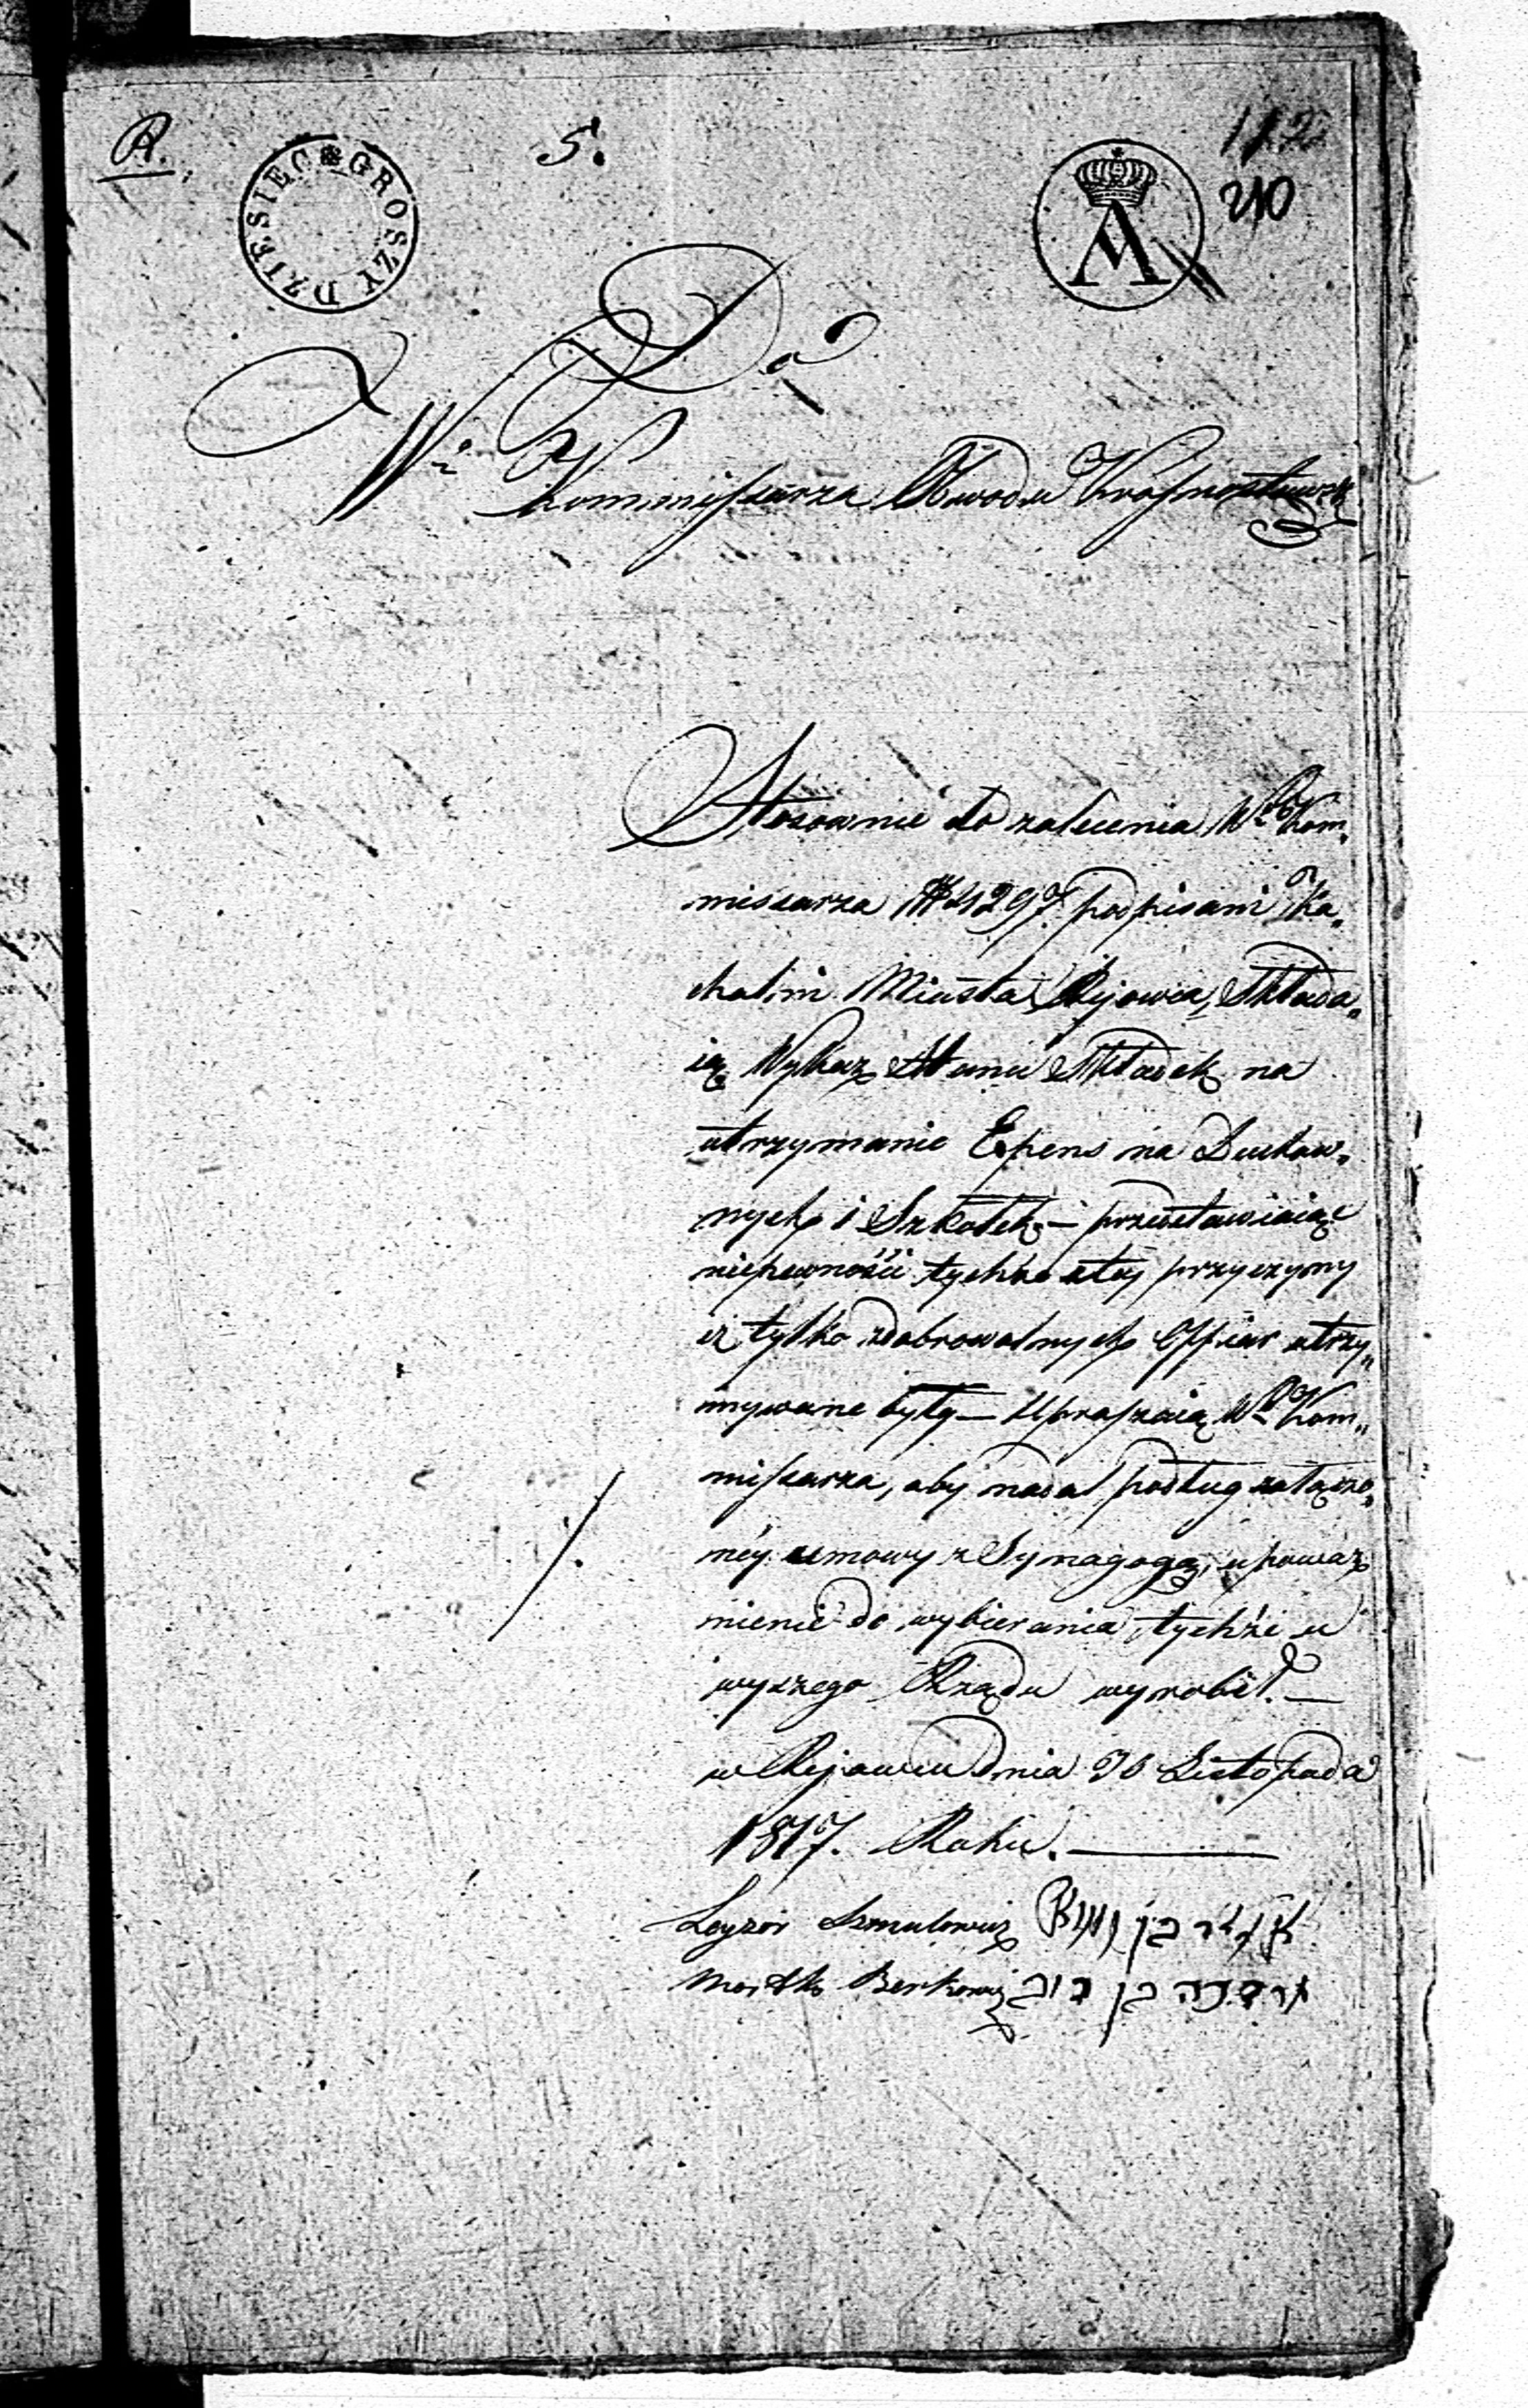 R.
5.
210
DZIESIĘC GROSZY
A
Do
W°
Kommissarza Obwodu Krasnostawsk.
Stosownie do zalecenia W° Kom„
missarza N 4297. podpisani Ka„
chalmi Miasta Rejowca, Składa„
ią Wykaz Stanu Składek na
utrzymanie Expens na Duchow„
nych i Szkołek – przedstawiaiąc
niepewności tychże z tej przyczyny
iż tylko z dobrowolnych Offiar utrzy„
mywane były – Upraszaią W° Kom„
missarza, aby nadal podług załączo„
néy umowy z Synagogą, upoważ„
nienie do wybierania tychże u
wyszego Rządu wyrobił. –
w Rejowcu dnia 26 Listopada
1817. Roku.
Leyzor Szmulowicz בן
Mortko Berkowicz מרדכי בן דוב